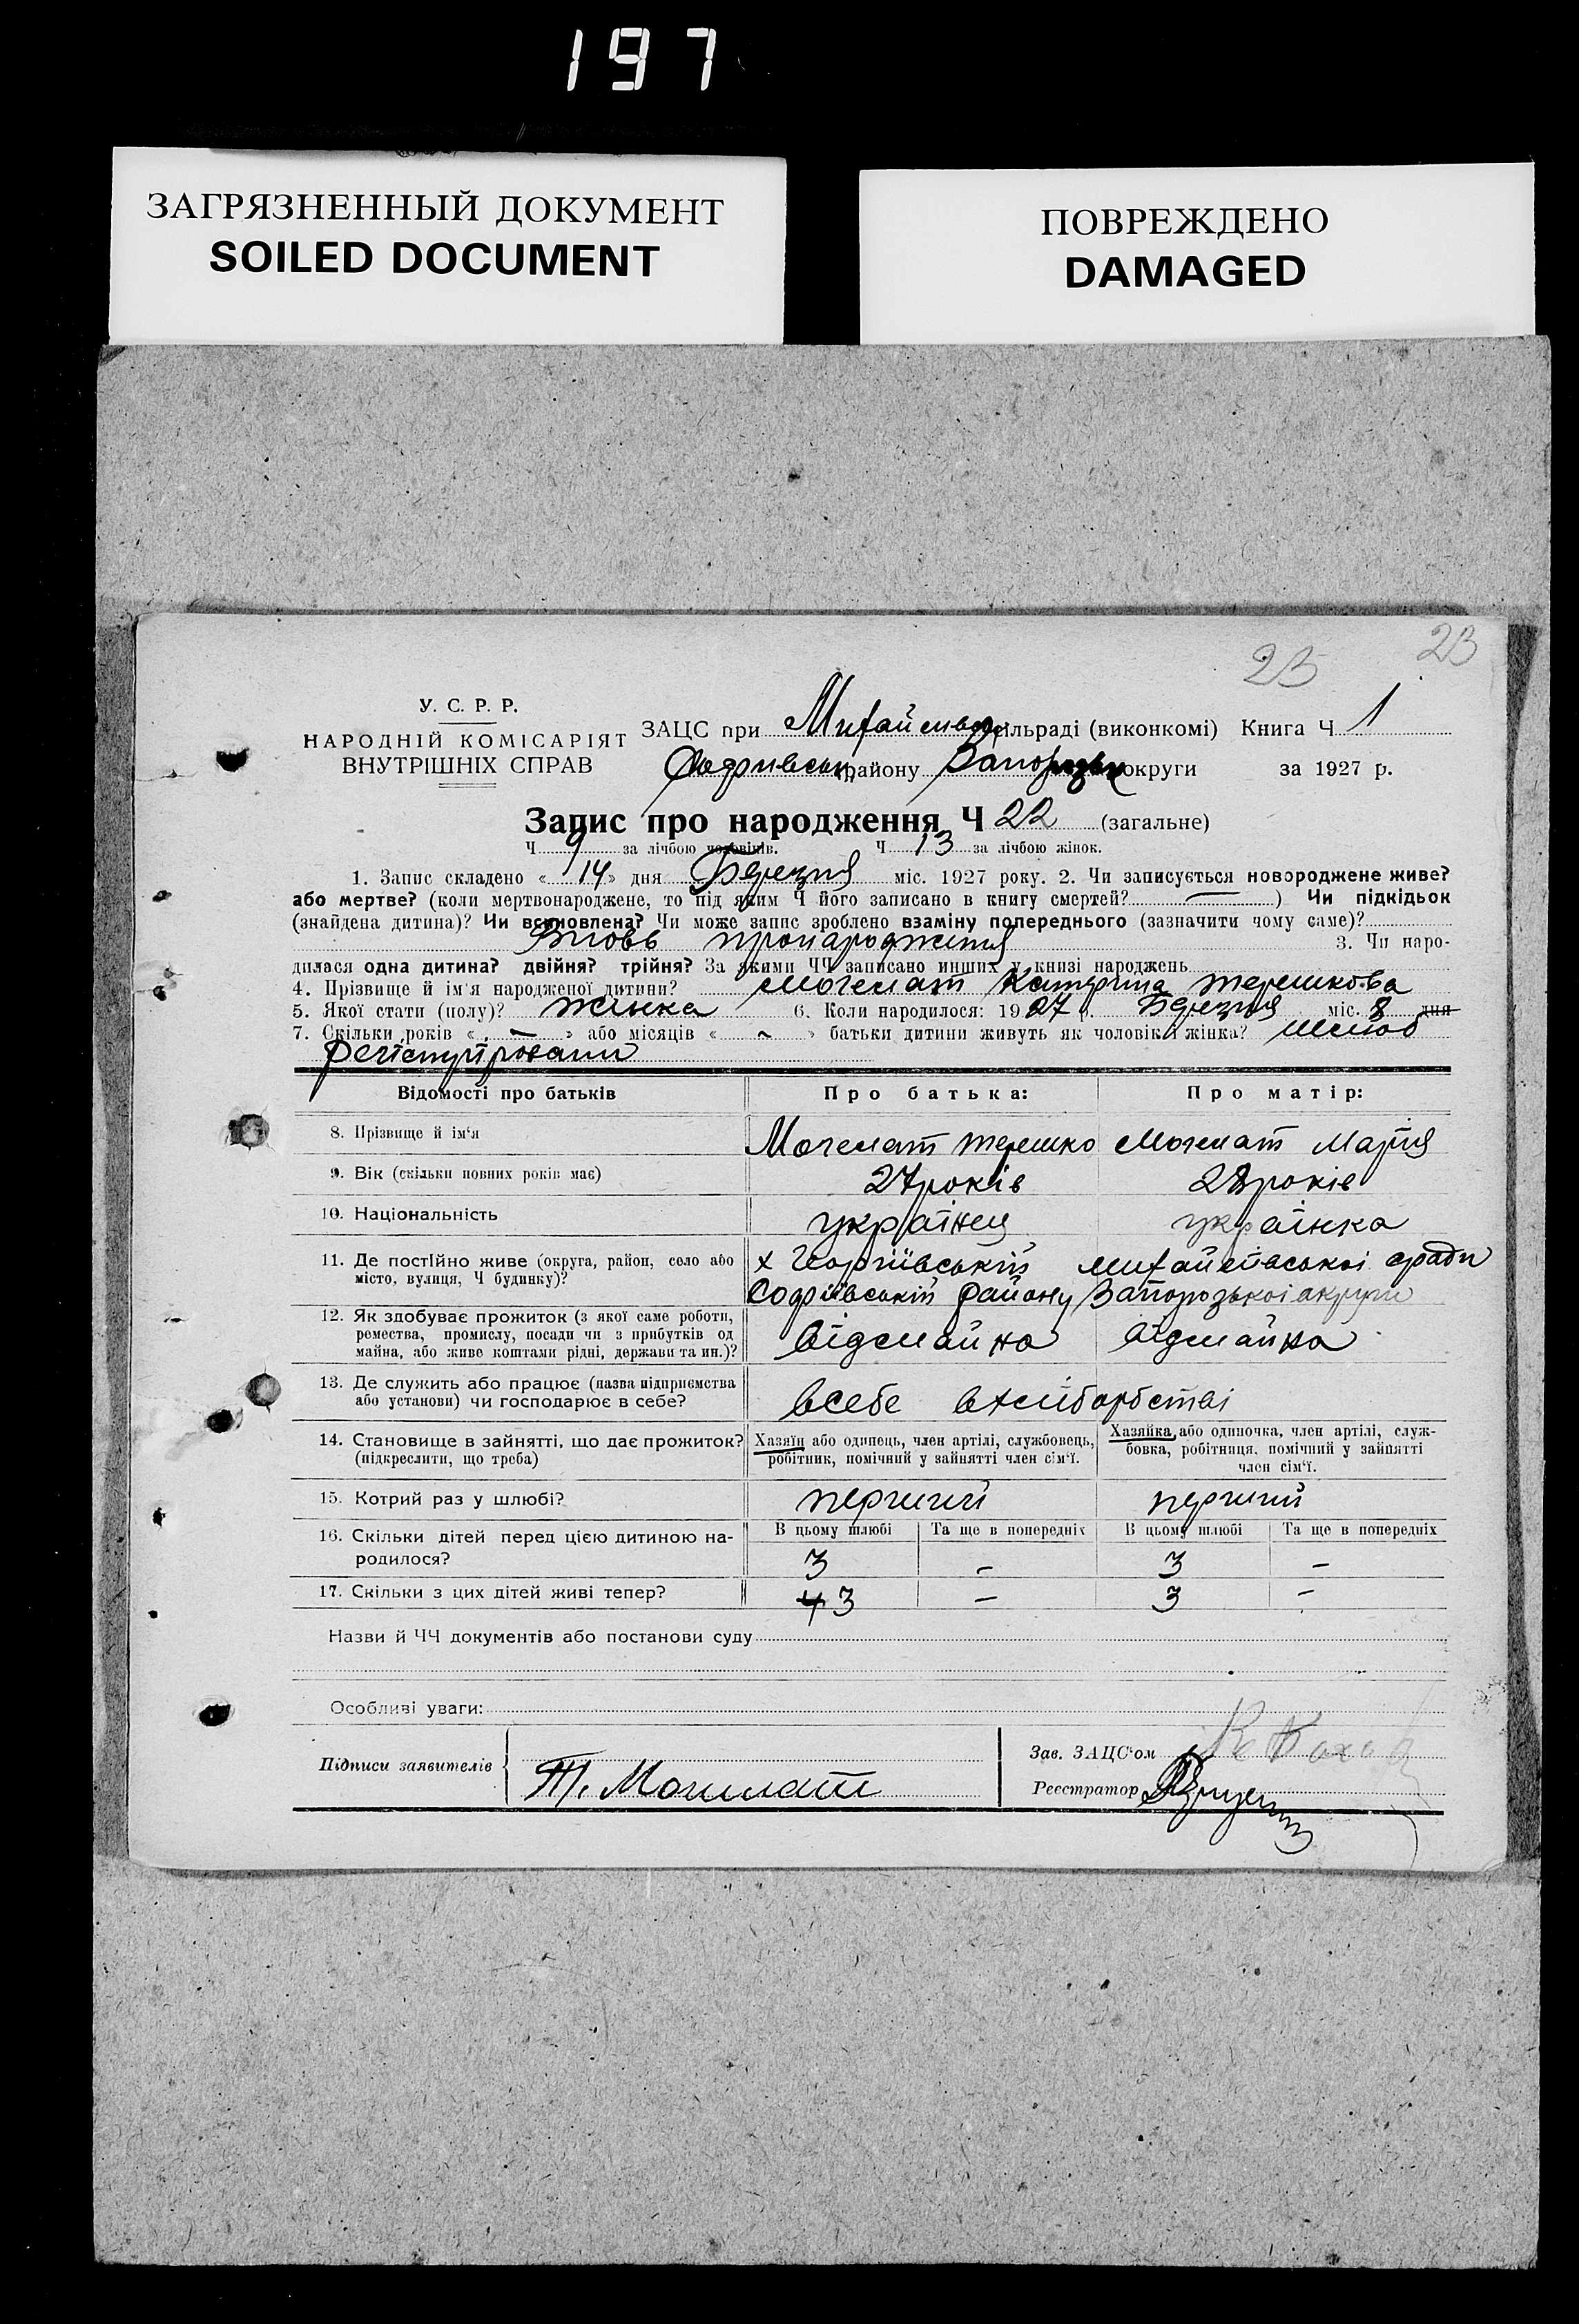 197
ЗАГРЯЗНЕННЫЙ ДОКУМЕНТ
SOILED DOCUMENT
ПОВРЕЖДЕНО
DAMAGED
23
23
У. С. Р. Р.
НАРОДНІЙ КОМІСАРІЯТ
ВНУТРІШНІХ СПРАВ
ЗАЦС при сільраді (виконкомі) Книга Ч 1
району округи за 1927 р.
Запис про народження Ч 22 (загальне)
Ч 9 за лічбою чоловіків. Ч 13 за лічбою жінок.
1. Запис складено « 14 » дня Березня міс. 1927 року. 2. Чи записується новороджене живе?
або мертве? (коли мертвонароджене, то під яким Ч його записано в книгу смертей? — ) Чи підкідьок
(знайдена дитина)? Чи встановлена? Чи може запис зроблено взаміну попереднього (зазначити чому саме)?
Вновь 3. Чи наро-
дилася одна дитина? двійня? трійня? За якими ЧЧ записано инших у книзі народжень
4. Прізвище й ім'я народженої дитини? Катерина Терешкова
5. Якої стати (полу)? Жінка 6. Коли народилося: 1927 р. Березня міс. 8 дня
7. Скільки років « - » або місяців « ~ » батьки дитини живуть як чоловік й жінка? шлюб
Відомості про батьків
Про батька:
Про матір:
8. Прізвище й ім'я
Терешко
Мария
9. Вік (скільки повних років має)
27 років
28 років
10. Національність
українец
українка
11. Де постійно живе (округа, район, село або
місто, вулиця, Ч будинку)?
х Георгіївський Михайлівської сради
Софиївський району Запорозької округи
12. Як здобуває прожиток (з якої саме роботи,
ремества, промислу, посади чи з прибутків од
майна, або живе коштами рідні, держави та ин.)?
відмайна
відмайна
13. Де служить або працює (назва підприємства
або установи) чи господарює в себе?
всебе вхліборбстві
14. Становище в зайнятті, що дає прожиток?
(підкреслити, що треба)
Хазяїн або одинець, член артілі, службовець,
робітник, помічний у зайнятті член сім'ї.
Хазяйка, або одиночка, член артілі, служ-
бовка, робітниця, помічний у зайнятті
член сім'ї.
15. Котрий раз у шлюбі?
перший
перший
16. Скільки дітей перед цією дитиною на-
родилося?
В цьому шлюбі
Та ще в попередніх
В цьому шлюбі
Та ще в попередніх
3 - 3 -
17. Скільки з цих дітей живі тепер?
4 3 - 3 -
Назви й ЧЧ документів або постанови суду
Особливі уваги:
Підписи заявителів
Зав. ЗАЦС'ом
Реєстратор